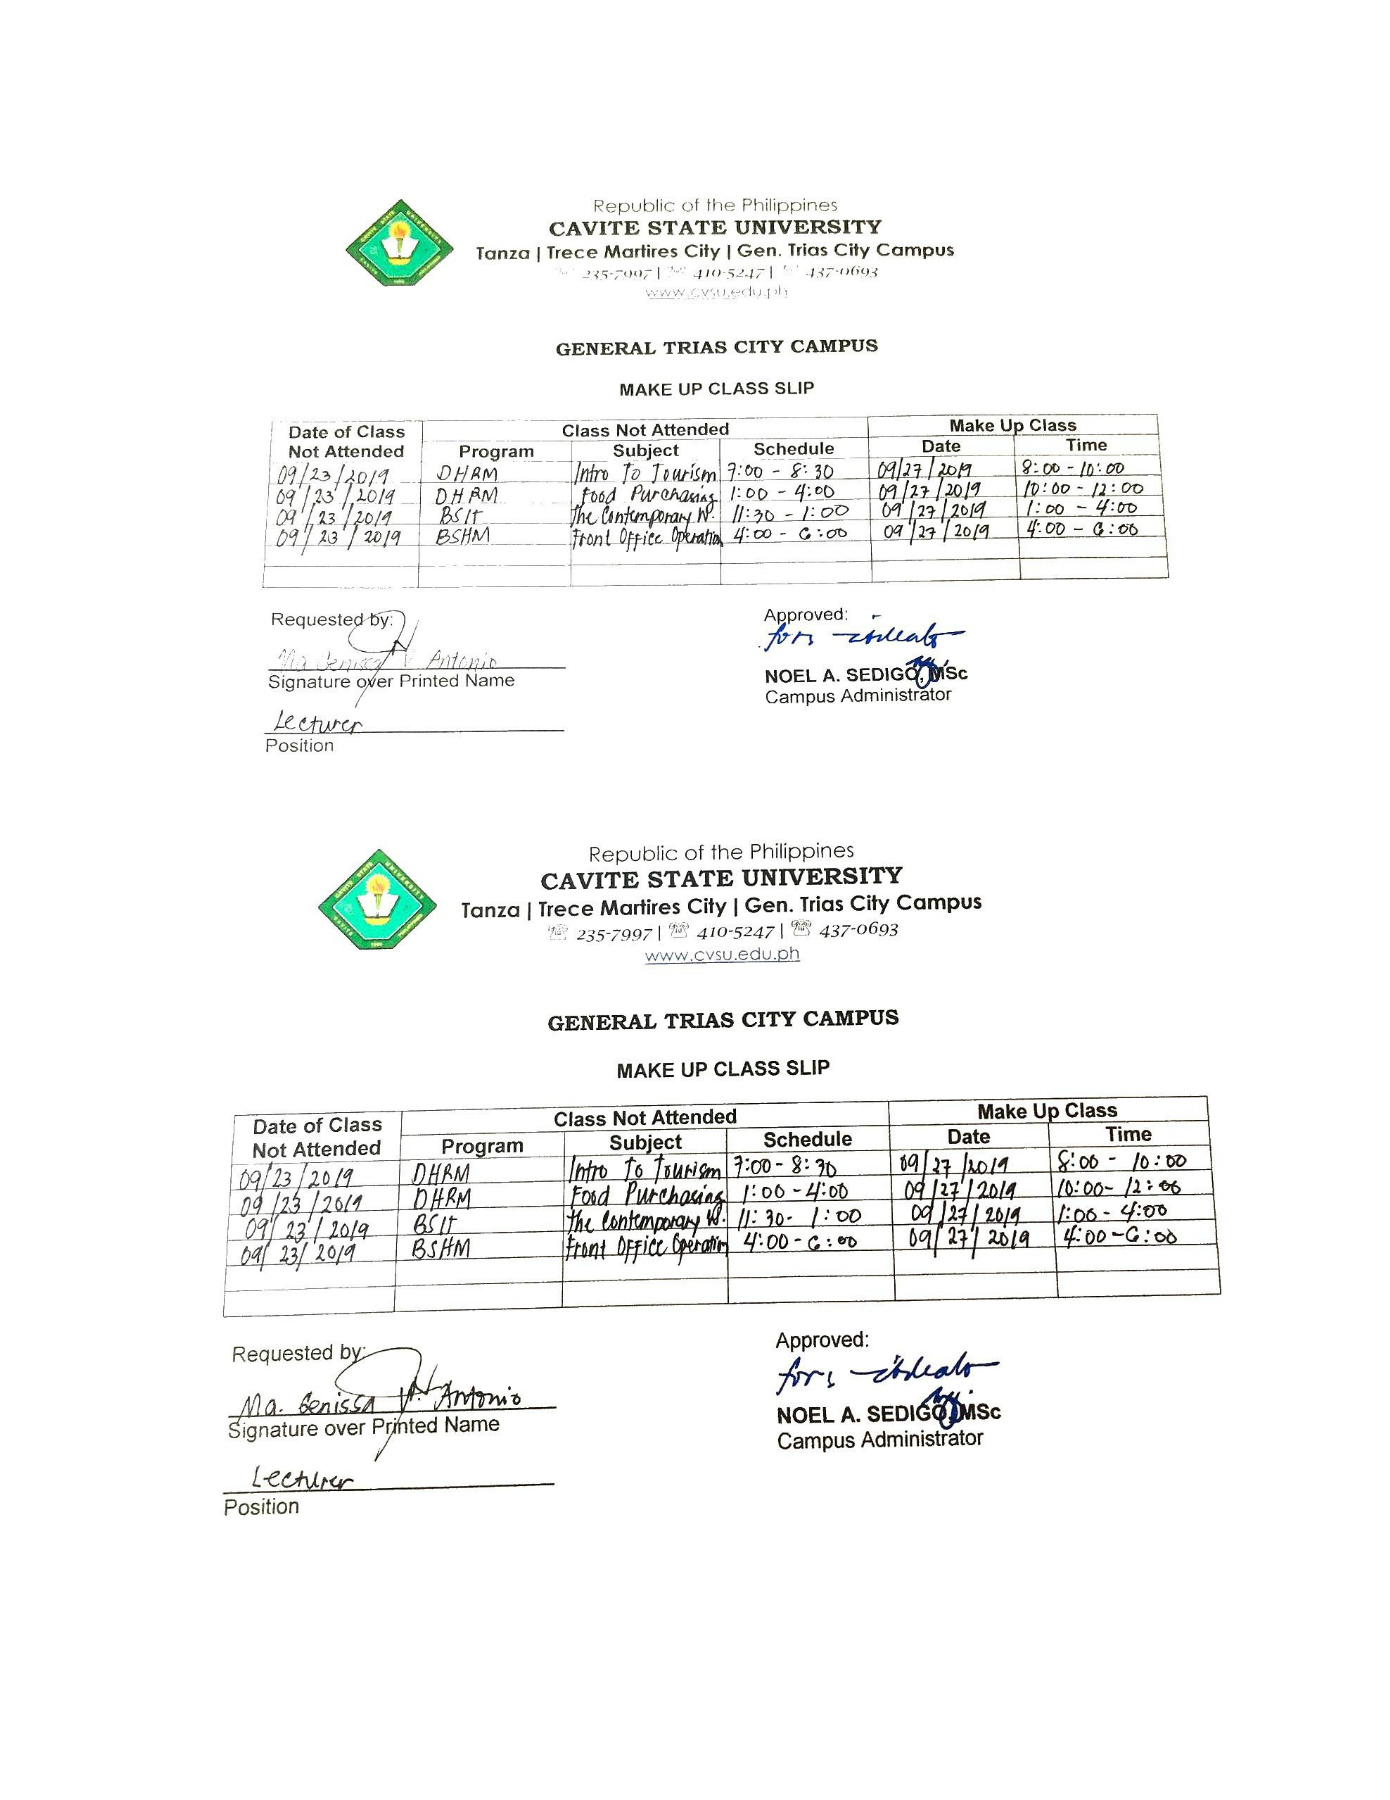 Republic of the Philippines
CAVITE STATE UNIVERSITY
Tanza | Trece Martires City | Gen. Trias City Campus
235-7997 | 410-5247 | 437-0693
www.cvsu.edu.ph
GENERAL TRIAS CITY CAMPUS
MAKE UP CLASS SLIP
Date of Class Not Attended Class Not Attended Make Up Class
Program Subject Schedule Date Time
09/23/2019 DHRM Intro To Tourism 7:00 - 8:30 09/27/2019 8:00 - 10:00
09/23/2019 DHRM Food Purchasing 1:00 - 4:00 09/27/2019 10:00 - 12:00
09/23/2019 BSIT The Contemporary W. 11:30 - 1:00 09/27/2019 1:00 - 4:00
09/23/2019 BSHM Front Office Operation 4:00 - 6:00 09/27/2019 4:00 - 6:00
Requested by: Approved:
Ma. Jenissa V. Antonio
Signature over Printed Name NOEL A. SEDIGO, MSc
Campus Administrator
Lecturer
Position
Republic of the Philippines
CAVITE STATE UNIVERSITY
Tanza | Trece Martires City | Gen. Trias City Campus
235-7997 | 410-5247 | 437-0693
www.cvsu.edu.ph
GENERAL TRIAS CITY CAMPUS
MAKE UP CLASS SLIP
Date of Class Not Attended Class Not Attended Make Up Class
Program Subject Schedule Date Time
09/23/2019 DHRM Intro To Tourism 7:00 - 8:30 09/27/2019 8:00 - 10:00
09/23/2019 DHRM Food Purchasing 1:00 - 4:00 09/27/2019 10:00 - 12:00
09/23/2019 BSIT The Contemporary W. 11:30 - 1:00 09/27/2019 1:00 - 4:00
09/23/2019 BSHM Front Office Operation 4:00 - 6:00 09/27/2019 4:00 - 6:00
Requested by: Approved:
Ma. Jenissa V. Antonio
Signature over Printed Name NOEL A. SEDIGO, MSc
Campus Administrator
Lecturer
Position